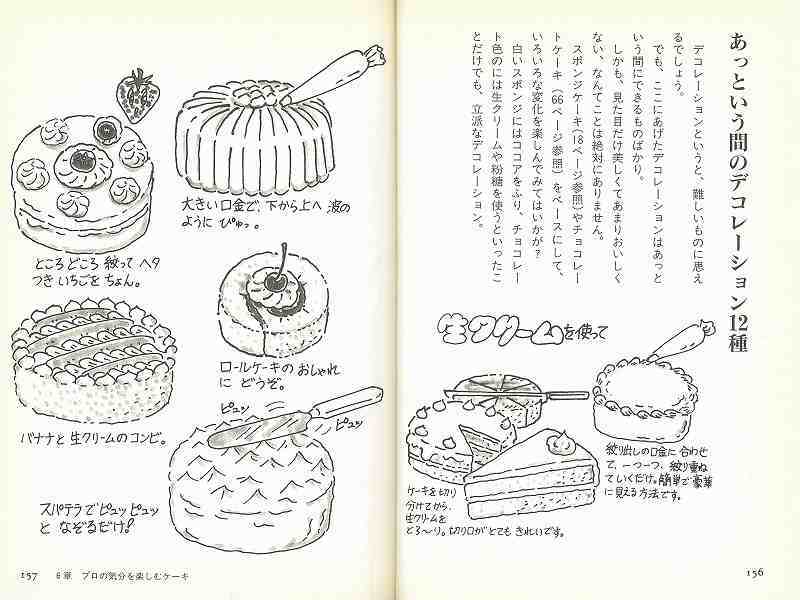 あっという間のデコレーション12種
デコレーションというと、難しいものに思え
るでしょう。
でも、ここにあげたデコレーションはあっと
いう間にできるものばかり。
しかも、見た目だけ美しくてあまりおいしく
ない、なんてことは絶対にありません。
スポンジケーキ(18ページ参照)やチョコレー
トケーキ(66ページ参照)をベースにして、
いろいろな変化を楽しんでみてはいかが?
白いスポンジにはココアをふり、チョコレー
ト色のには生クリームや粉糖を使うといったこ
とだけでも、立派なデコレーション。
生クリームを使って
絞り出しの口金に合わせ
て、一つ一つ、絞り重ね
ていくだけ。簡単で豪華
に見える方法です。
ケーキを切り
分けてから、
生クリームを
とろ〜り。切り口がとてもきれいです。
156
大きい口金で、下から上へ波の
ように ぴゅっ。
ところどころ絞って ヘタ
つきいちごを ちょん。
ロールケーキの おしゃれ
に どうぞ。
バナナと生クリームのコンビ。
ピュッ
ピュッ
スパテラでピュッピュッ
と なぞるだけ!
157 6章 プロの気分を楽しむケーキ